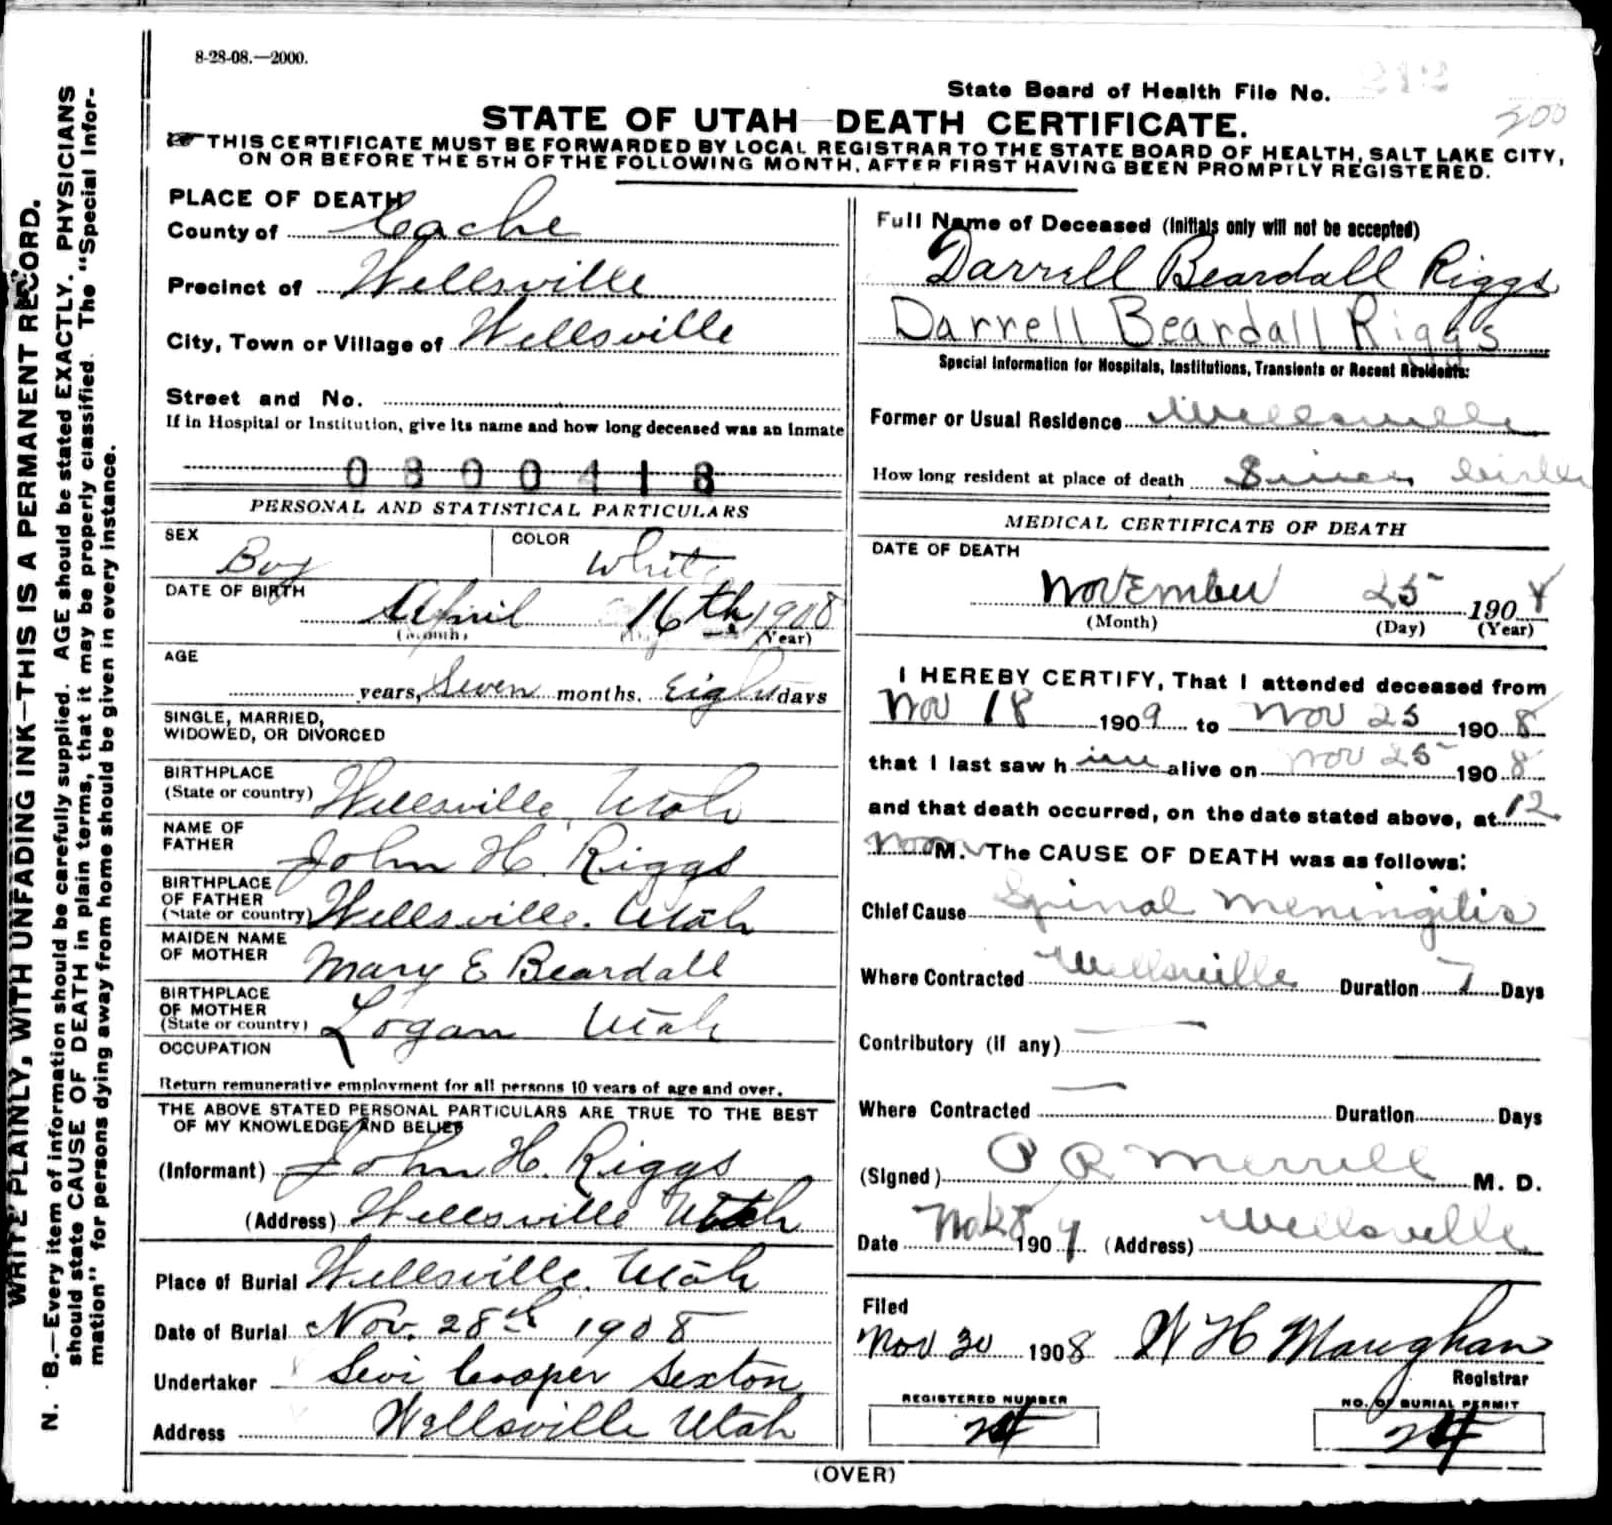 8-28-08.—2000.
State Board of Health File No. 212
200
STATE OF UTAH—DEATH CERTIFICATE.
THIS CERTIFICATE MUST BE FORWARDED BY LOCAL REGISTRAR TO THE STATE BOARD OF HEALTH, SALT LAKE CITY,
ON OR BEFORE THE 5TH OF THE FOLLOWING MONTH, AFTER FIRST HAVING BEEN PROMPTLY REGISTERED.
WRITE PLAINLY, WITH UNFADING INK—THIS IS A PERMANENT RECORD.
N. B.—Every item of information should be carefully supplied. AGE should be stated EXACTLY. PHYSICIANS
should state CAUSE OF DEATH in plain terms, that it may be properly classified. The "Special Infor-
mation" for persons dying away from home should be given in every instance.
PLACE OF DEATH
County of Cache
Precinct of Wellsville
City, Town or Village of Wellsville
Street and No.
If in Hospital or Institution, give its name and how long deceased was an inmate
0800418
PERSONAL AND STATISTICAL PARTICULARS
SEX Boy COLOR White
DATE OF BIRTH April 16th 1908
(Month) (Day) (Year)
AGE
years, Seven months. Eight days
SINGLE, MARRIED,
WIDOWED, OR DIVORCED
BIRTHPLACE
(State or country) Wellsville, Utah
NAME OF
FATHER John H. Riggs
BIRTHPLACE
OF FATHER
(State or country) Wellsville. Utah
MAIDEN NAME
OF MOTHER Mary E Beardall
BIRTHPLACE
OF MOTHER
(State or country) Logan Utah
OCCUPATION
Return remunerative employment for all persons 10 years of age and over.
THE ABOVE STATED PERSONAL PARTICULARS ARE TRUE TO THE BEST
OF MY KNOWLEDGE AND BELIEF
(Informant) John H. Riggs
(Address) Wellsville Utah
Place of Burial Wellsville. Utah
Date of Burial Nov. 28th 1908
Undertaker Levi Cooper Sexton
Address Wellsville Utah
Full Name of Deceased (Initials only will not be accepted)
Darrell Beardall Riggs
Darrell Beardall Riggs
Special Information for Hospitals, Institutions, Transients or Recent Residents:
Former or Usual Residence Wellsville
How long resident at place of death Since birth
MEDICAL CERTIFICATE OF DEATH
DATE OF DEATH
November 25 190
(Month) (Day) (Year)
I HEREBY CERTIFY, That I attended deceased from
Nov 18 1909 to Nov 25 1908
that I last saw him alive on Nov 25 1908
and that death occurred, on the date stated above, at 12
noon M. The CAUSE OF DEATH was as follows:
Chief Cause Spinal Meningitis
Where Contracted Wellsville Duration 7 Days
Contributory (if any)
Where Contracted Duration Days
(Signed) P R Merrell M. D.
Date 190 (Address) Wellsville
Filed
Nov 30 1908 W H Maughan
Registrar
REGISTERED NUMBER
24
NO. OF BURIAL PERMIT
24
(OVER)